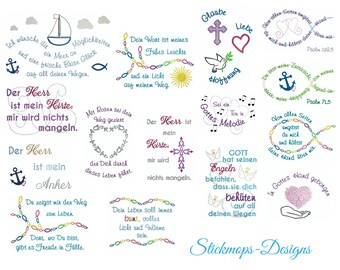 Ich wünsche dir
ein Meer an Möglichkeiten
und eine frische Brise Glück
auf all deinen Wegen.
Dein Wort ist meines
Fußes Leuchte
und ein Licht
auf meinem Weg.
Glaube
Liebe
Hoffnung
Von allen Seiten
umgibst du
mich und hältst deine
Psalm
Psalm 71,5
Der Herr
ist mein Hirte,
mir wird nichts
mangeln.
Mit Rosen sei dein
Weg geziert
der Dich durch
dieses Leben führt.
Der Herr
ist mein
Hirte,
mir wird
nichts
mangeln.
Sei ein
Ton in
Gottes
Melodie
Von allen Seiten
umgibst du
mich und hältst
deine Hand über mir.
Der Herr
ist mein
Anker
GOTT
hat seinen
Engeln
befohlen,
dass sie dich
behüten
auf all
deinen Wegen
In Gottes Hand geborgen
Du zeigst mir den Weg
zum Leben.
Dort, wo Du bist,
gibt es Freude in Fülle.
Dein Leben soll immer
bunt, voller
Licht und Wärme
sein.
Stickmops-Designs